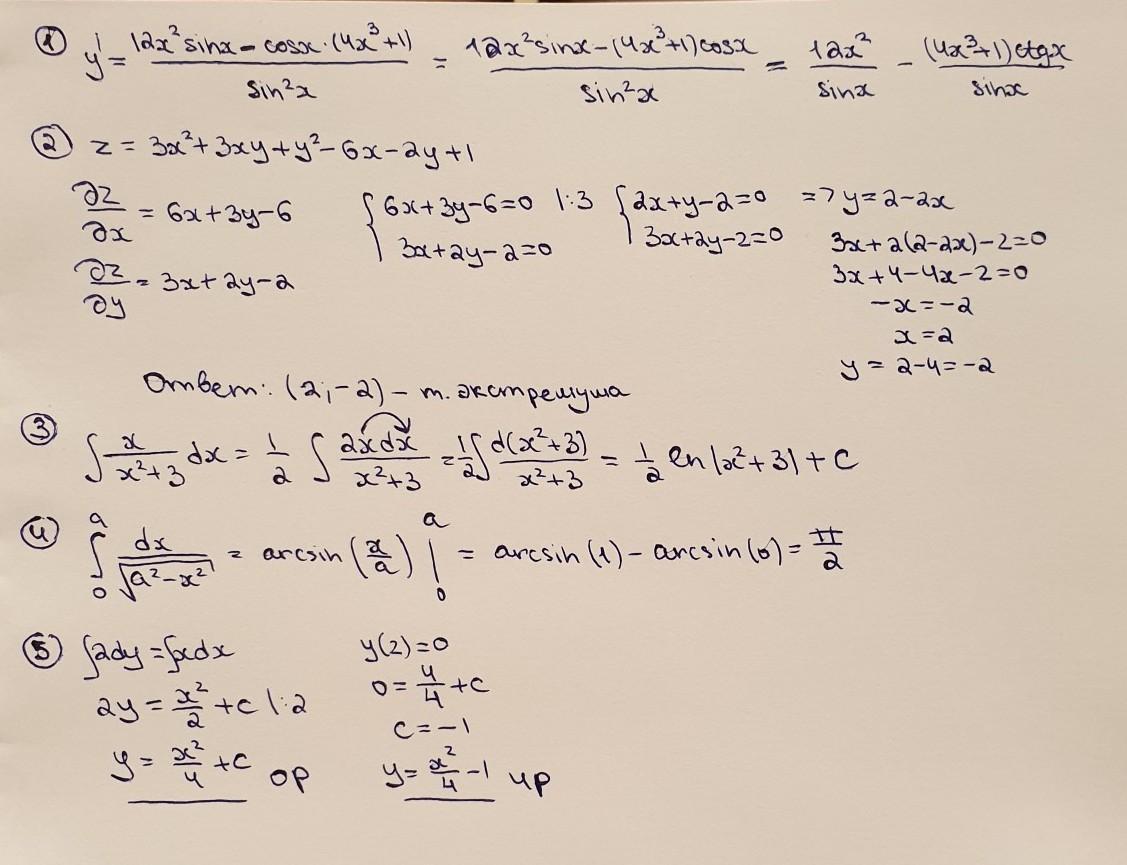 ① y' = (12x² sinx - cosx · (4x³+1)) / sin²x = (12x² sinx - (4x³+1) cosx) / sin²x = 12x² / sinx - (4x³+1) ctgx / sinx
② z = 3x² + 3xy + y² - 6x - 2y + 1
∂z/∂x = 6x + 3y - 6
∂z/∂y = 3x + 2y - 2
{ 6x + 3y - 6 = 0 | :3
3x + 2y - 2 = 0
{ 2x + y - 2 = 0 => y = 2 - 2x
3x + 2y - 2 = 0
3x + 2(2 - 2x) - 2 = 0
3x + 4 - 4x - 2 = 0
-x = -2
x = 2
y = 2 - 4 = -2
Ответ: (2; -2) - т. экстремума
③ ∫ x/(x²+3) dx = 1/2 ∫ 2xdx/(x²+3) = 1/2 ∫ d(x²+3)/(x²+3) = 1/2 ln |x²+3| + C
④ ∫₀ᵃ dx/√(a²-x²) = arcsin (x/a) |₀ᵃ = arcsin (1) - arcsin (0) = π/2
⑤ ∫2dy = ∫xdx
2y = x²/2 + C | :2
y = x²/4 + C ор
y(2) = 0
0 = 4/4 + C
C = -1
y = x²/4 - 1 чр